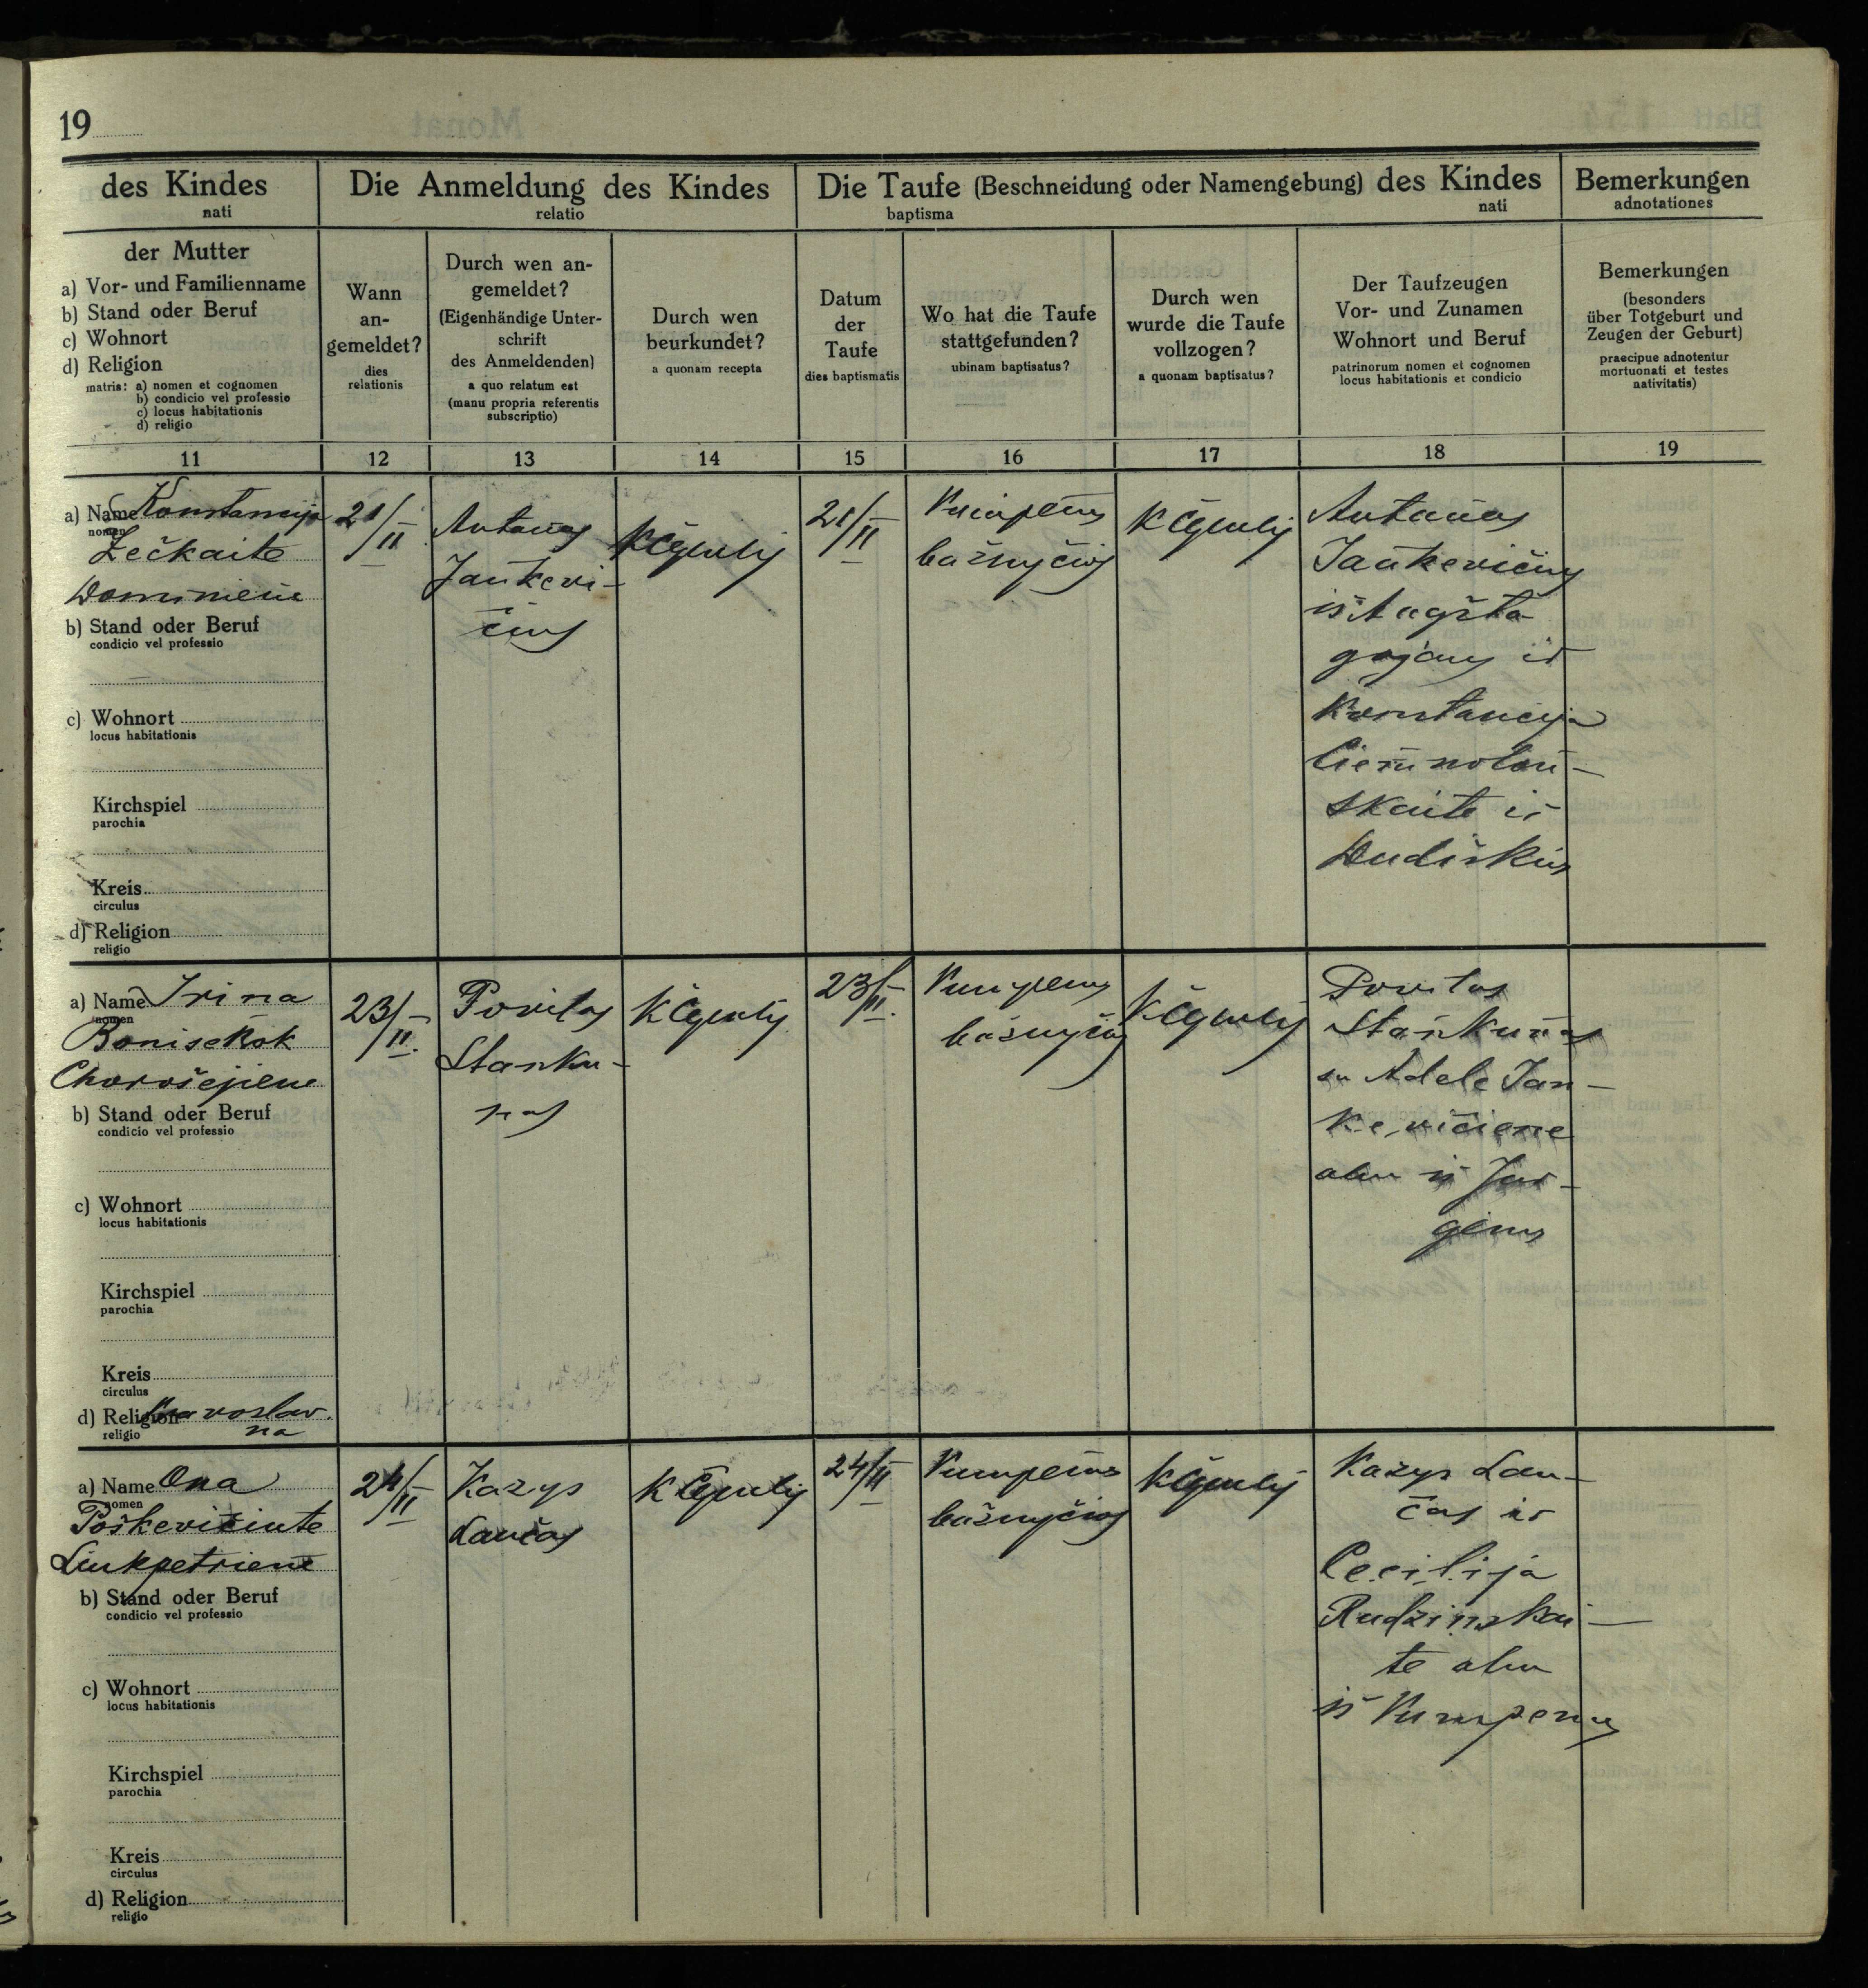 19
des Kindes
nati
Die Anmeldung des Kindes
relatio
Die Taufe (Beschneidung oder Namengebung) des Kindes
baptisma nati
Bemerkungen
adnotationes
der Mutter
a) Vor- und Familienname
b) Stand oder Beruf
c) Wohnort
d) Religion
matris: a) nomen et cognomen
b) condicio vel professio
c) locus habitationis
d) religio
Wann
an-
gemeldet?
dies
relationis
Durch wen an-
gemeldet?
(Eigenhändige Unter-
schrift
des Anmeldenden)
a quo relatum est
(manu propria referentis
subscriptio)
Durch wen
beurkundet?
a quonam recepta
Datum
der
Taufe
dies baptismatis
Wo hat die Taufe
stattgefunden?
ubinam baptisatus?
Durch wen
wurde die Taufe
vollzogen?
a quonam baptisatus?
Der Taufzeugen
Vor- und Zunamen
Wohnort und Beruf
patrinorum nomen et cognomen
locus habitationis et condicio
Bemerkungen
(besonders
über Totgeburt und
Zeugen der Geburt)
praecipue adnotentur
mortuonati et testes
nativitatis)
11 12 13 14 15 16 17 18 19
a) Name Konstancija
nomen
Zečkaitė
b) Stand oder Beruf
condicio vel professio
c) Wohnort
locus habitationis
Kirchspiel
parochia
Kreis
circulus
d) Religion
religio
21/II
Antanas
Jankevi-
čius
21/II
bažnyčioj
Antanas
Jankevičius
iš Augšta
gojaus ir
Konstancija
skaite iš
a) Name Irina
nomen
b) Stand oder Beruf
condicio vel professio
c) Wohnort
locus habitationis
Kirchspiel
parochia
Kreis
circulus
d) Religion Pravoslav.
religio na
23/II.
Povilas
Stanku-
nas
23/II.
bažnyčioj
Povilas
Stankunas
su Adele Jan-
kevičiene
abu iš Jur-
genų
a) Name Ona
nomen
Poškevičiute
Linkpetriene
b) Stand oder Beruf
condicio vel professio
c) Wohnort
locus habitationis
Kirchspiel
parochia
Kreis
circulus
d) Religion
religio
24/II
Kazys
Laučas
24/II
bažnyčioj
Kazys Lau-
čas ir
Cecilija
Rudzinskai-
te abu
iš